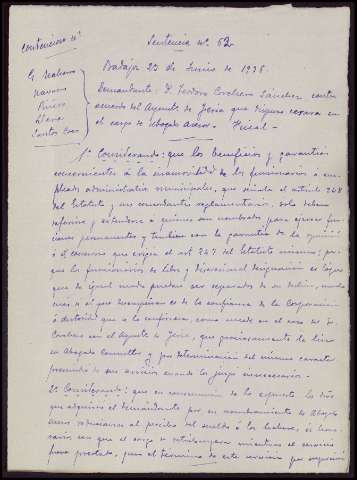 Contencioso Ad.
Sentencia nº. 62
Badajoz 25 de Junio de 1936.
G. Mahave
Navarro
Rivero
Llera
Demandante: D. Teodoro Cordero Sánchez contra
acuerdo del Ayunto. de Jerez que dispuso cesara en
el cargo de Abogado Asesor. Fiscal
1º Considerando: que los beneficios y garantias
concernientes á la inamovilidad de los funcionarios ó em-
pleados administrativos municipales, que señala el articulo 248
del Estatuto, y sus concordantes reglamentarios, solo deben
referirse y extenderse á quienes son nombrados para ejercer fun-
ciones permanentes y tambien con la garantia de la oposición
ó el concurso que exige el art 247 del Estatuto mismo; por-
que los funcionarios de libre y discrecional designación es lógico
que de igual modo puedan ser separados de su destino, mucho
mas si el que desempeñan es de la confianza de la Corporación
ó autoridad que lo confiriera, como sucede en el caso del Sr.
Cordero con el Ayunto. de Jerez, que
en Abogado Consultor y por determinación del mismo
prescindió de sus servicios cuando los juzgó innecesarios.
2º Considerando: que en consecuencia de lo expuesto los dros
que adquirió el demandante por su nombramiento de Abogado
asesor
con que el cargo se retribuyera mientras el servicio
fuera prestado, pero el término de este servicio